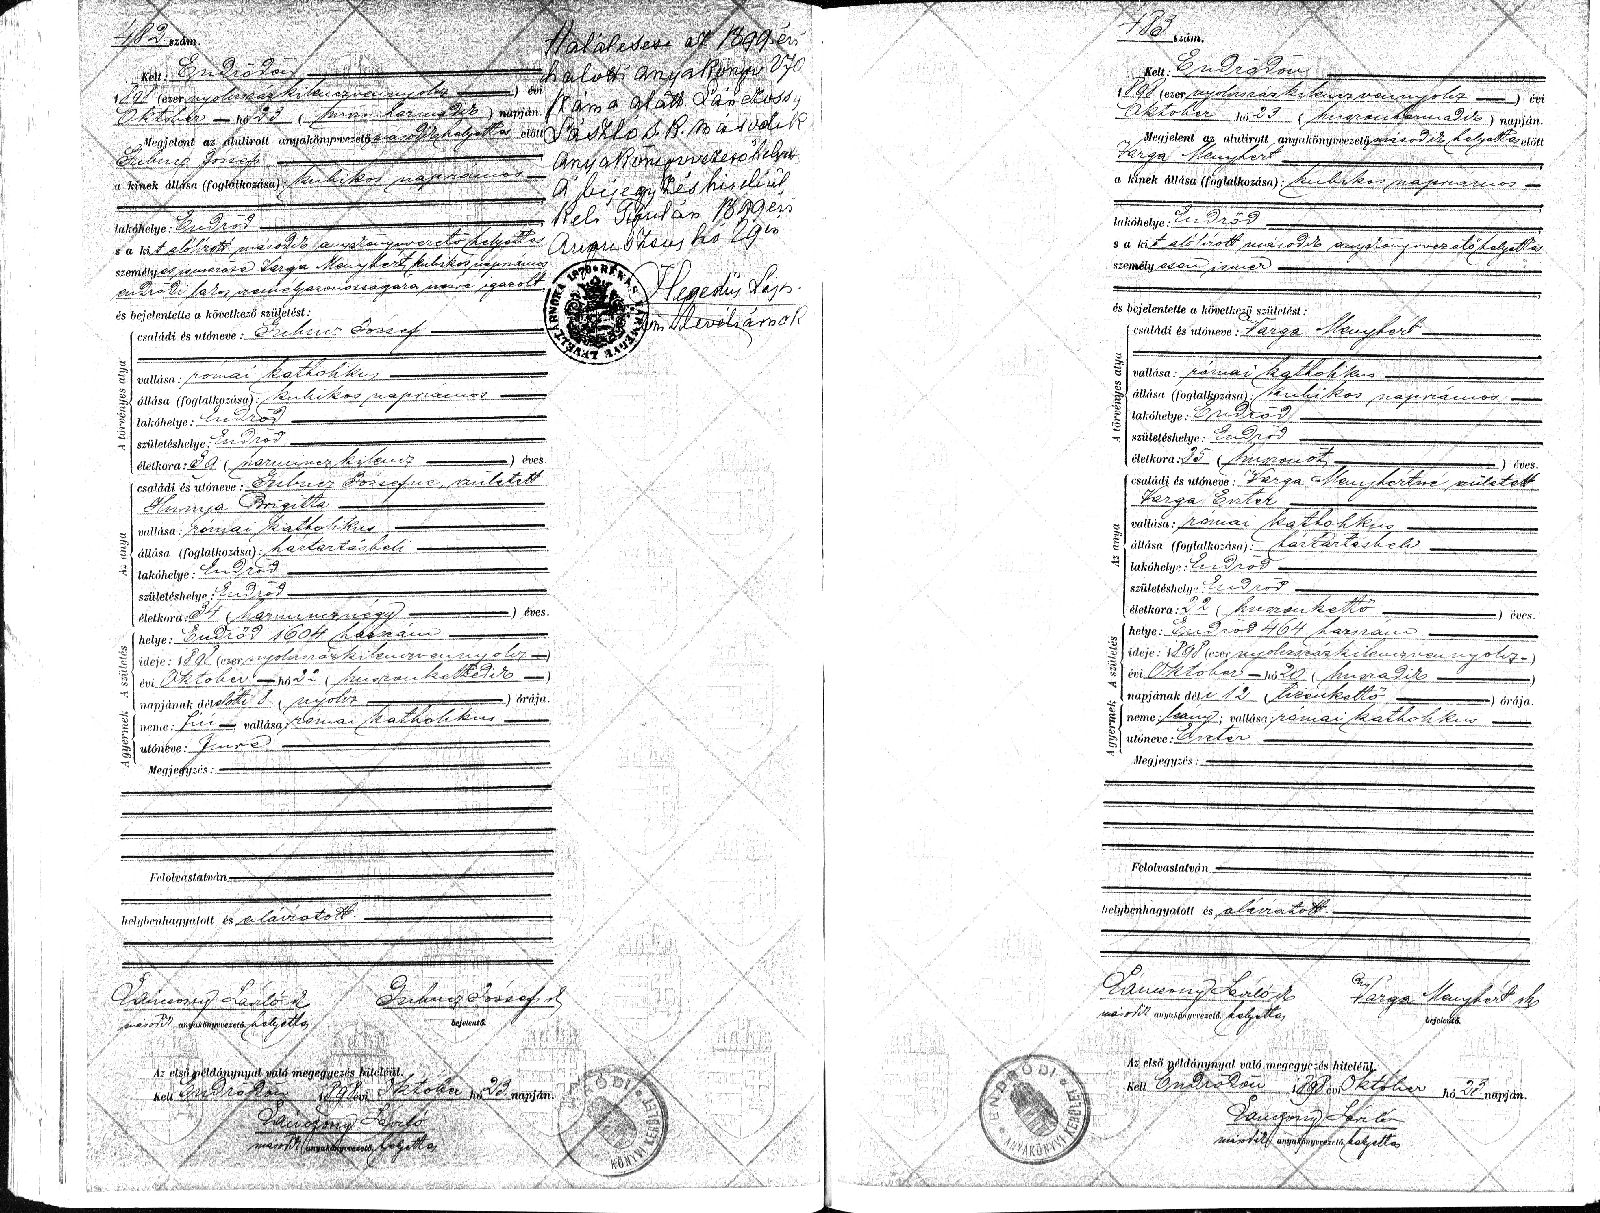 482 szám.
Kelt: Endrődön
1898 (ezer nyolczszázkilenczvennyolcz) évi
Október hó 23 (huszonharmadik) napján.
Megjelent az alulirott anyakönyvvezető második helyettes előtt
József
a kinek állása (foglalkozása): kubikos napszámos
lakóhelye: Endrőd
s a kit alólírott második anyakönyvvezető helyettes
személyesen Varga Menyhért kubikos napszámos
endrődi lakos személyazonosságára nézve igazolt
és bejelentette a következő születést:
A törvényes atya
családi és utóneve: József
vallása: római katholikus
állása (foglalkozása): kubikos napszámos
lakóhelye: Endrőd
születéshelye: Endrőd
életkora: 39 (harminczkilencz) éves.
Az anya
családi és utóneve: Józsefné, született
Hunya Brigitta
vallása: római katholikus
állása (foglalkozása): háztartásbeli
lakóhelye: Endrőd
születéshelye: Endrőd
életkora: 34 (harmincznégy) éves.
A gyermek A születés
helye: Endrőd 1604 házszám
ideje: 1898 (ezer nyolczszázkilenczvennyolcz)
évi Október hó 22 (huszonkettedik)
napjának délelőtti 8 (nyolcz) órája.
neme: fiú; vallása: római katholikus
utóneve: Imre
Megjegyzés:
Felolvastatván
helybenhagyatott és aláiratott
Lánczossy László sk
második anyakönyvvezető. helyettes
József sk
bejelentő.
Az első példánynyal való megegyezés hiteléül.
Kelt Endrődön 1898 évi Október hó 23 napján.
Lánczossy László
második anyakönyvvezető. helyettes
ENDRŐDI ANYAKÖNYVI KERÜLET
Halálesete az 1899 évi
halotti anyakönyv 170
száma alatt Lánczossy
László s. k. második
anyakönyvvezető helyettes
a bejegyzés hiteléül
Kelt Gyulán 1899 évi
Augusztus hó 29én
Hegedűs Lajos
levéltárnok
BÉKÉS VÁRMEGYE LEVÉLTÁRNOKA 1876
483 szám.
Kelt: Endrődön
1898 (ezer nyolczszázkilenczvennyolcz) évi
Október hó 23 (huszonharmadik) napján.
Megjelent az alulirott anyakönyvvezető második helyettes előtt
Varga Menyhért
a kinek állása (foglalkozása): kubikos napszámos
lakóhelye: Endrőd
s a kit alólírott második anyakönyvvezető helyettes
személyesen ismer
és bejelentette a következő születést:
A törvényes atya
családi és utóneve: Varga Menyhért
vallása: római katholikus
állása (foglalkozása): kubikos napszámos
lakóhelye: Endrőd
születéshelye: Endrőd
életkora: 25 (huszonöt) éves.
Az anya
családi és utóneve: Varga Menyhértné született
Varga Eszter
vallása: római katholikus
állása (foglalkozása): háztartásbeli
lakóhelye: Endrőd
születéshely: Endrőd
életkora: 22 (huszonkettő) éves.
A gyermek A születés
helye: Endrőd 464 házszám
ideje: 1898 (ezer nyolczszázkilenczvennyolcz)
évi Október hó 20 (huszadik)
napjának déli 12 (tizenkettő) órája.
neme: leány; vallása: római katholikus
utóneve: Eszter
Megjegyzés:
Felolvastatván
helybenhagyatott és aláiratott
Lánczossy László sk
második anyakönyvvezető. helyettes
Varga Menyhért sk
bejelentő.
Az első példánynyal való megegyezés hiteléül.
Kelt Endrődön 1898 évi Október hó 23 napján.
Lánczossy László
második anyakönyvvezető. helyettes
ENDRŐDI ANYAKÖNYVI KERÜLET